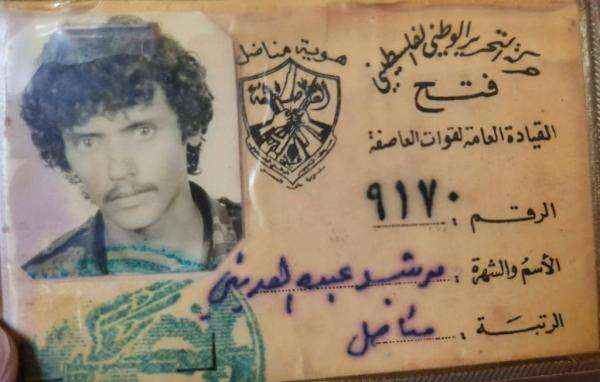 حركة التحرير الوطني الفلسطيني
هوية مناضل
فتح
العاصفة
القيادة العامة لقوات العاصفة
الرقم : ٩١٧٠
الأسم والشهرة : مرشد عبده العديني
الرتبة : مناضل